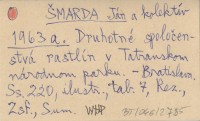 ŠMARDA Ján a kolektív
1963 a. Druhotné spoločen-
stvá rastlín v Tatranskom
národnom parku. – Bratislava.
Ss. 220, ilustr., tab. 7, Rez.,
Zsf., Sum.